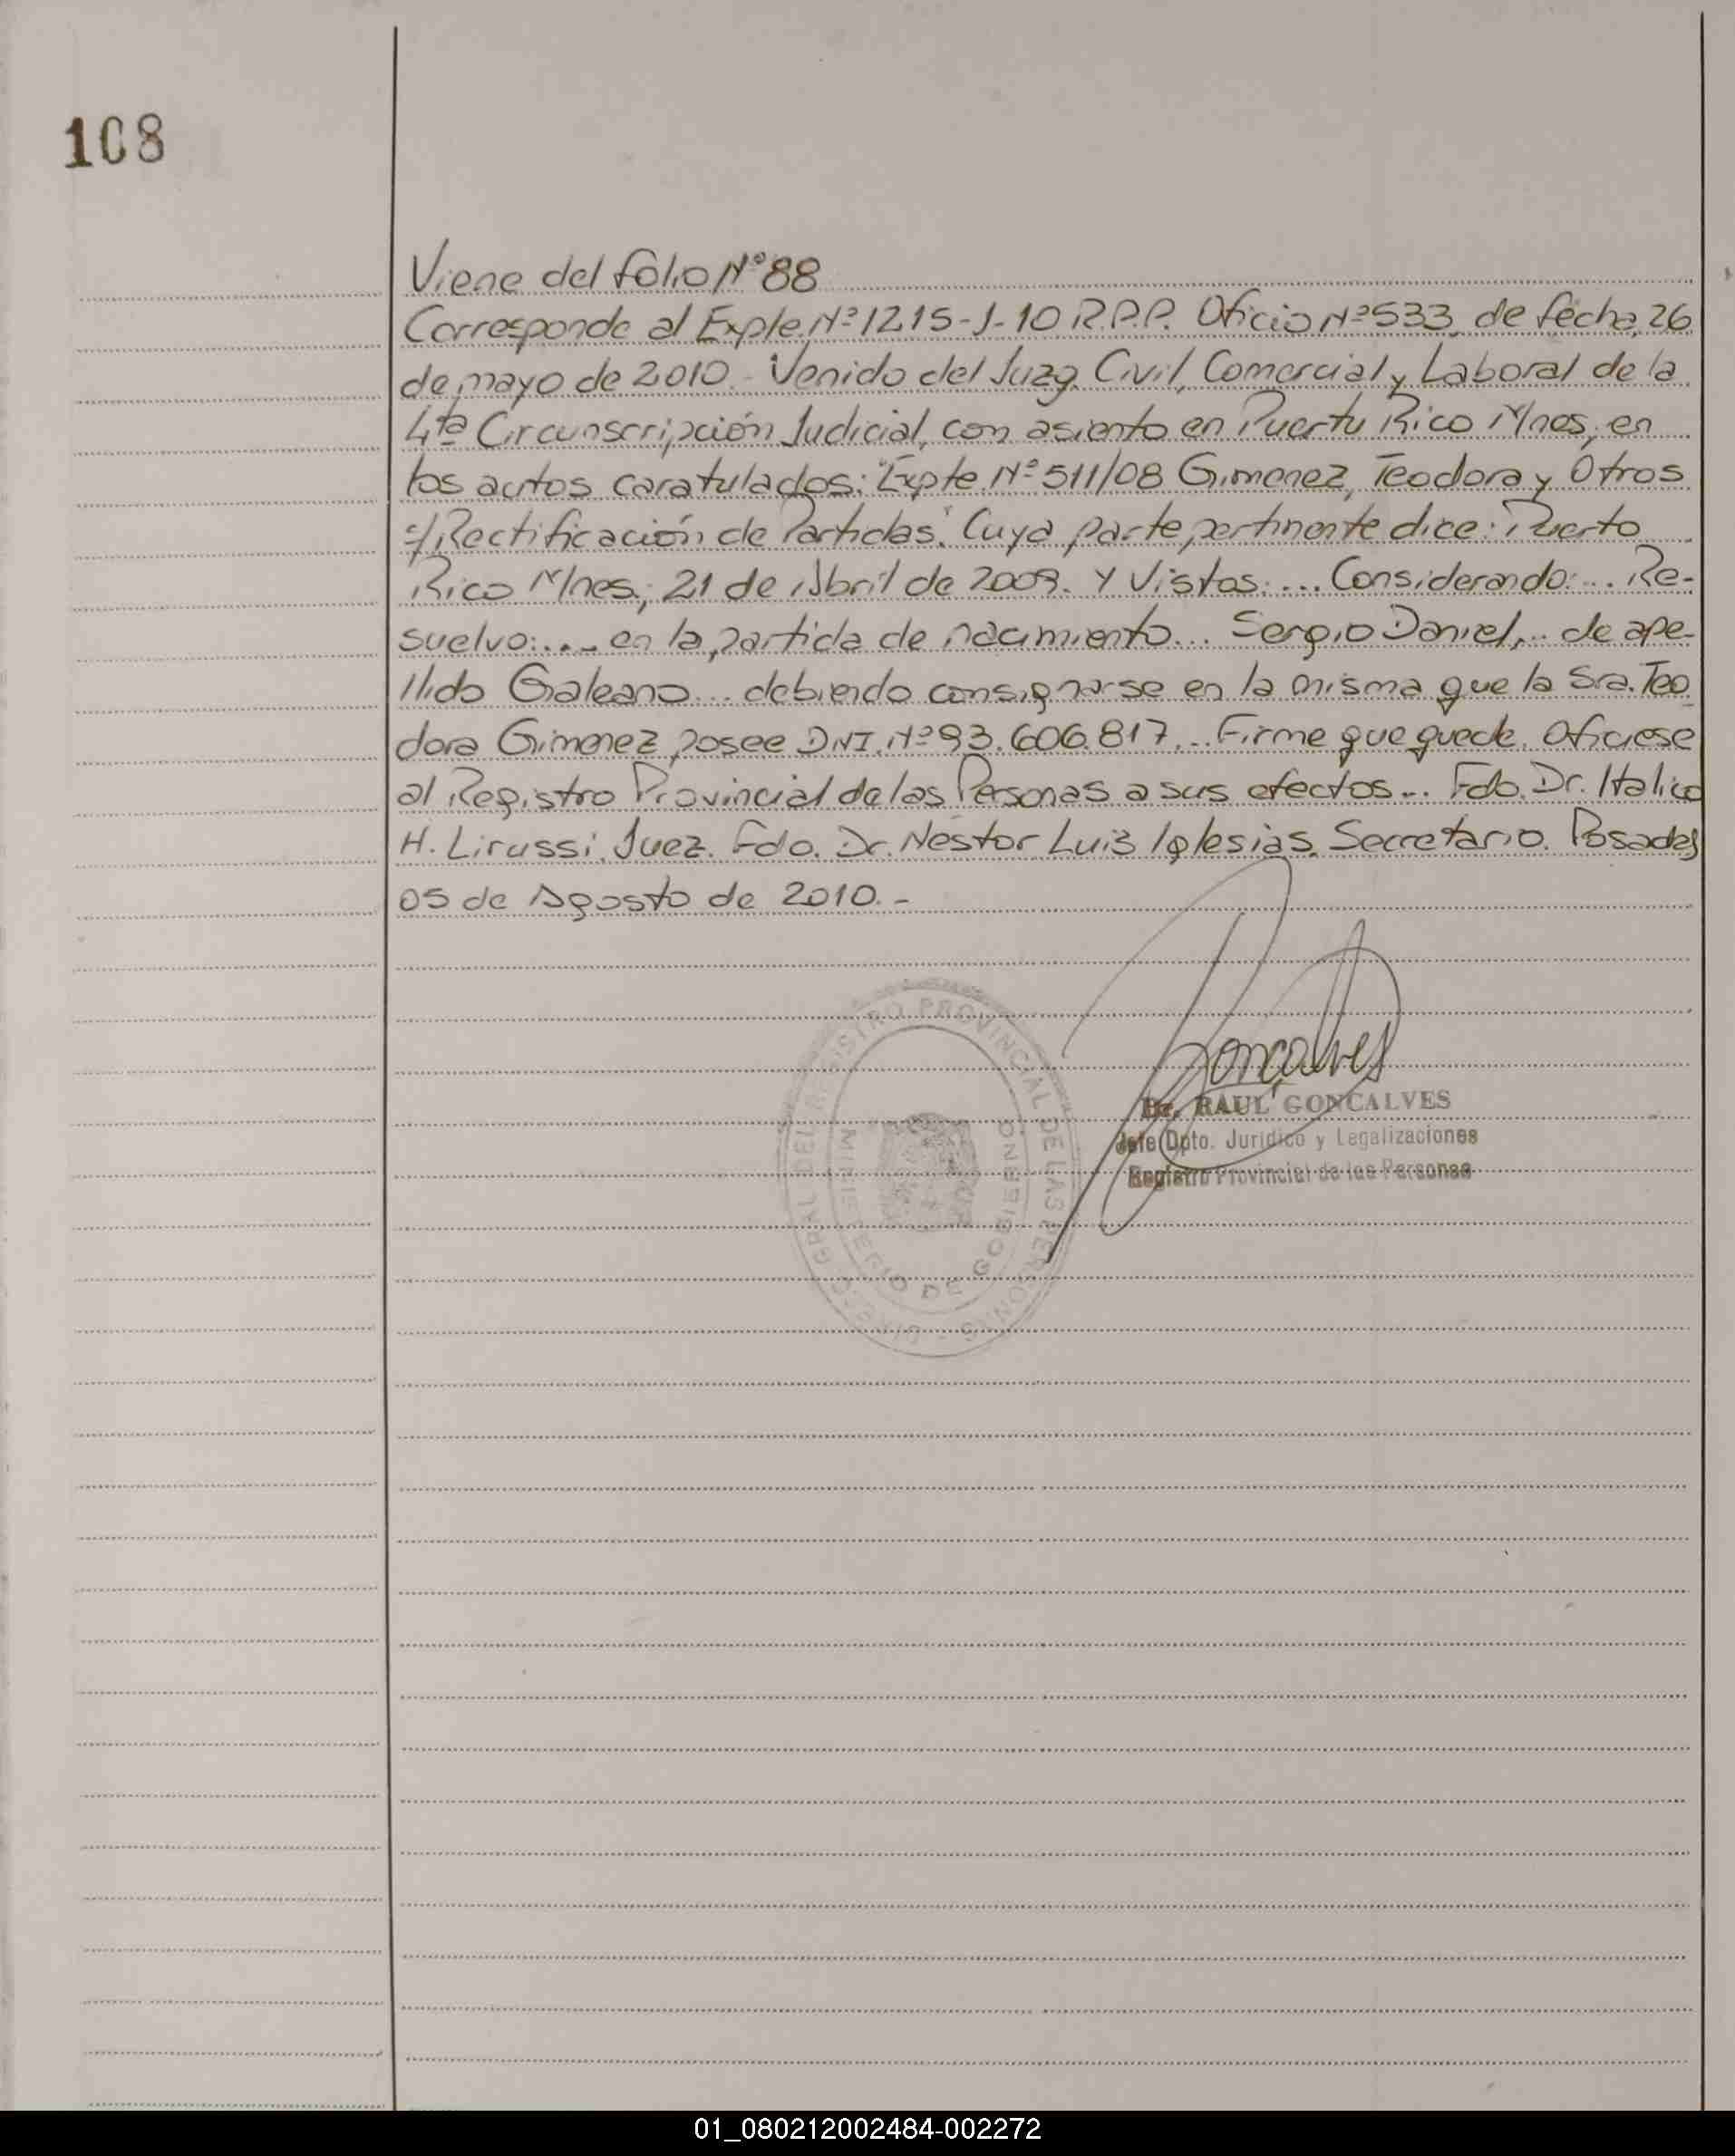 108
Viene del folio Nº 88
Corresponde al Expte. Nº 1215-J-10 R.P.P. Oficio Nº 533, de fecha, 26
de mayo de 2010.- Venido del Juzg. Civil, Comercial y Laboral de la
4ta Circunscripción Judicial, con asiento en Puerto Rico Mnes, en
los autos caratulados: "Expte. Nº 511/08 Gimenez, Teodora y Otros
s/Rectificación de Partidas". Cuya parte pertinente dice: Puerto
Rico Mnes., 21 de Abril de 2009. Y Vistos:... Considerando:... Re-
suelvo:... en la partida de nacimiento... Sergio Daniel,... de ape-
llido Galeano... debiendo consignarse en la misma que la Sra. Teo
dora Gimenez posee DNI. Nº 93.606.817... Firme que quede. Ofíciese
al Registro Provincial de las Personas a sus efectos... Fdo. Dr. Italico
H. Lirussi. Juez. Fdo. Dr. Nestor Luis Iglesias. Secretario. Posadas
05 de Agosto de 2010.-
Goncalves
Dr. RAUL GONCALVES
Jefe Dpto. Jurídico y Legalizaciones
Registro Provincial de las Personas
DEL REGISTRO PROVINCIAL DE LAS PERSONAS
MINISTERIO DE GOBIERNO
01_080212002484-002272